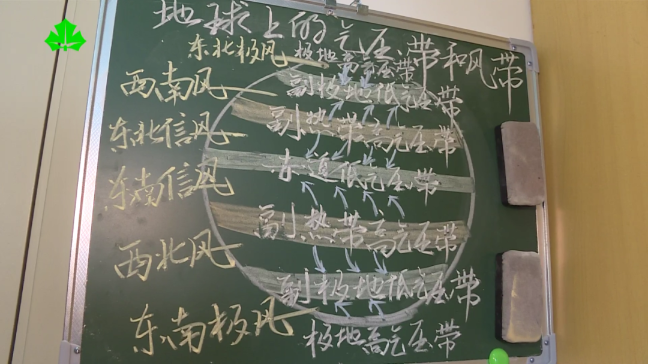 地球上的气压带和风带
东北极风 极地高气压带
西南风 副极地低气压带
东北信风 副热带高气压带
东南信风 赤道低气压带
西北风 副热带高气压带
副极地低气压带
东南极风 极地高气压带